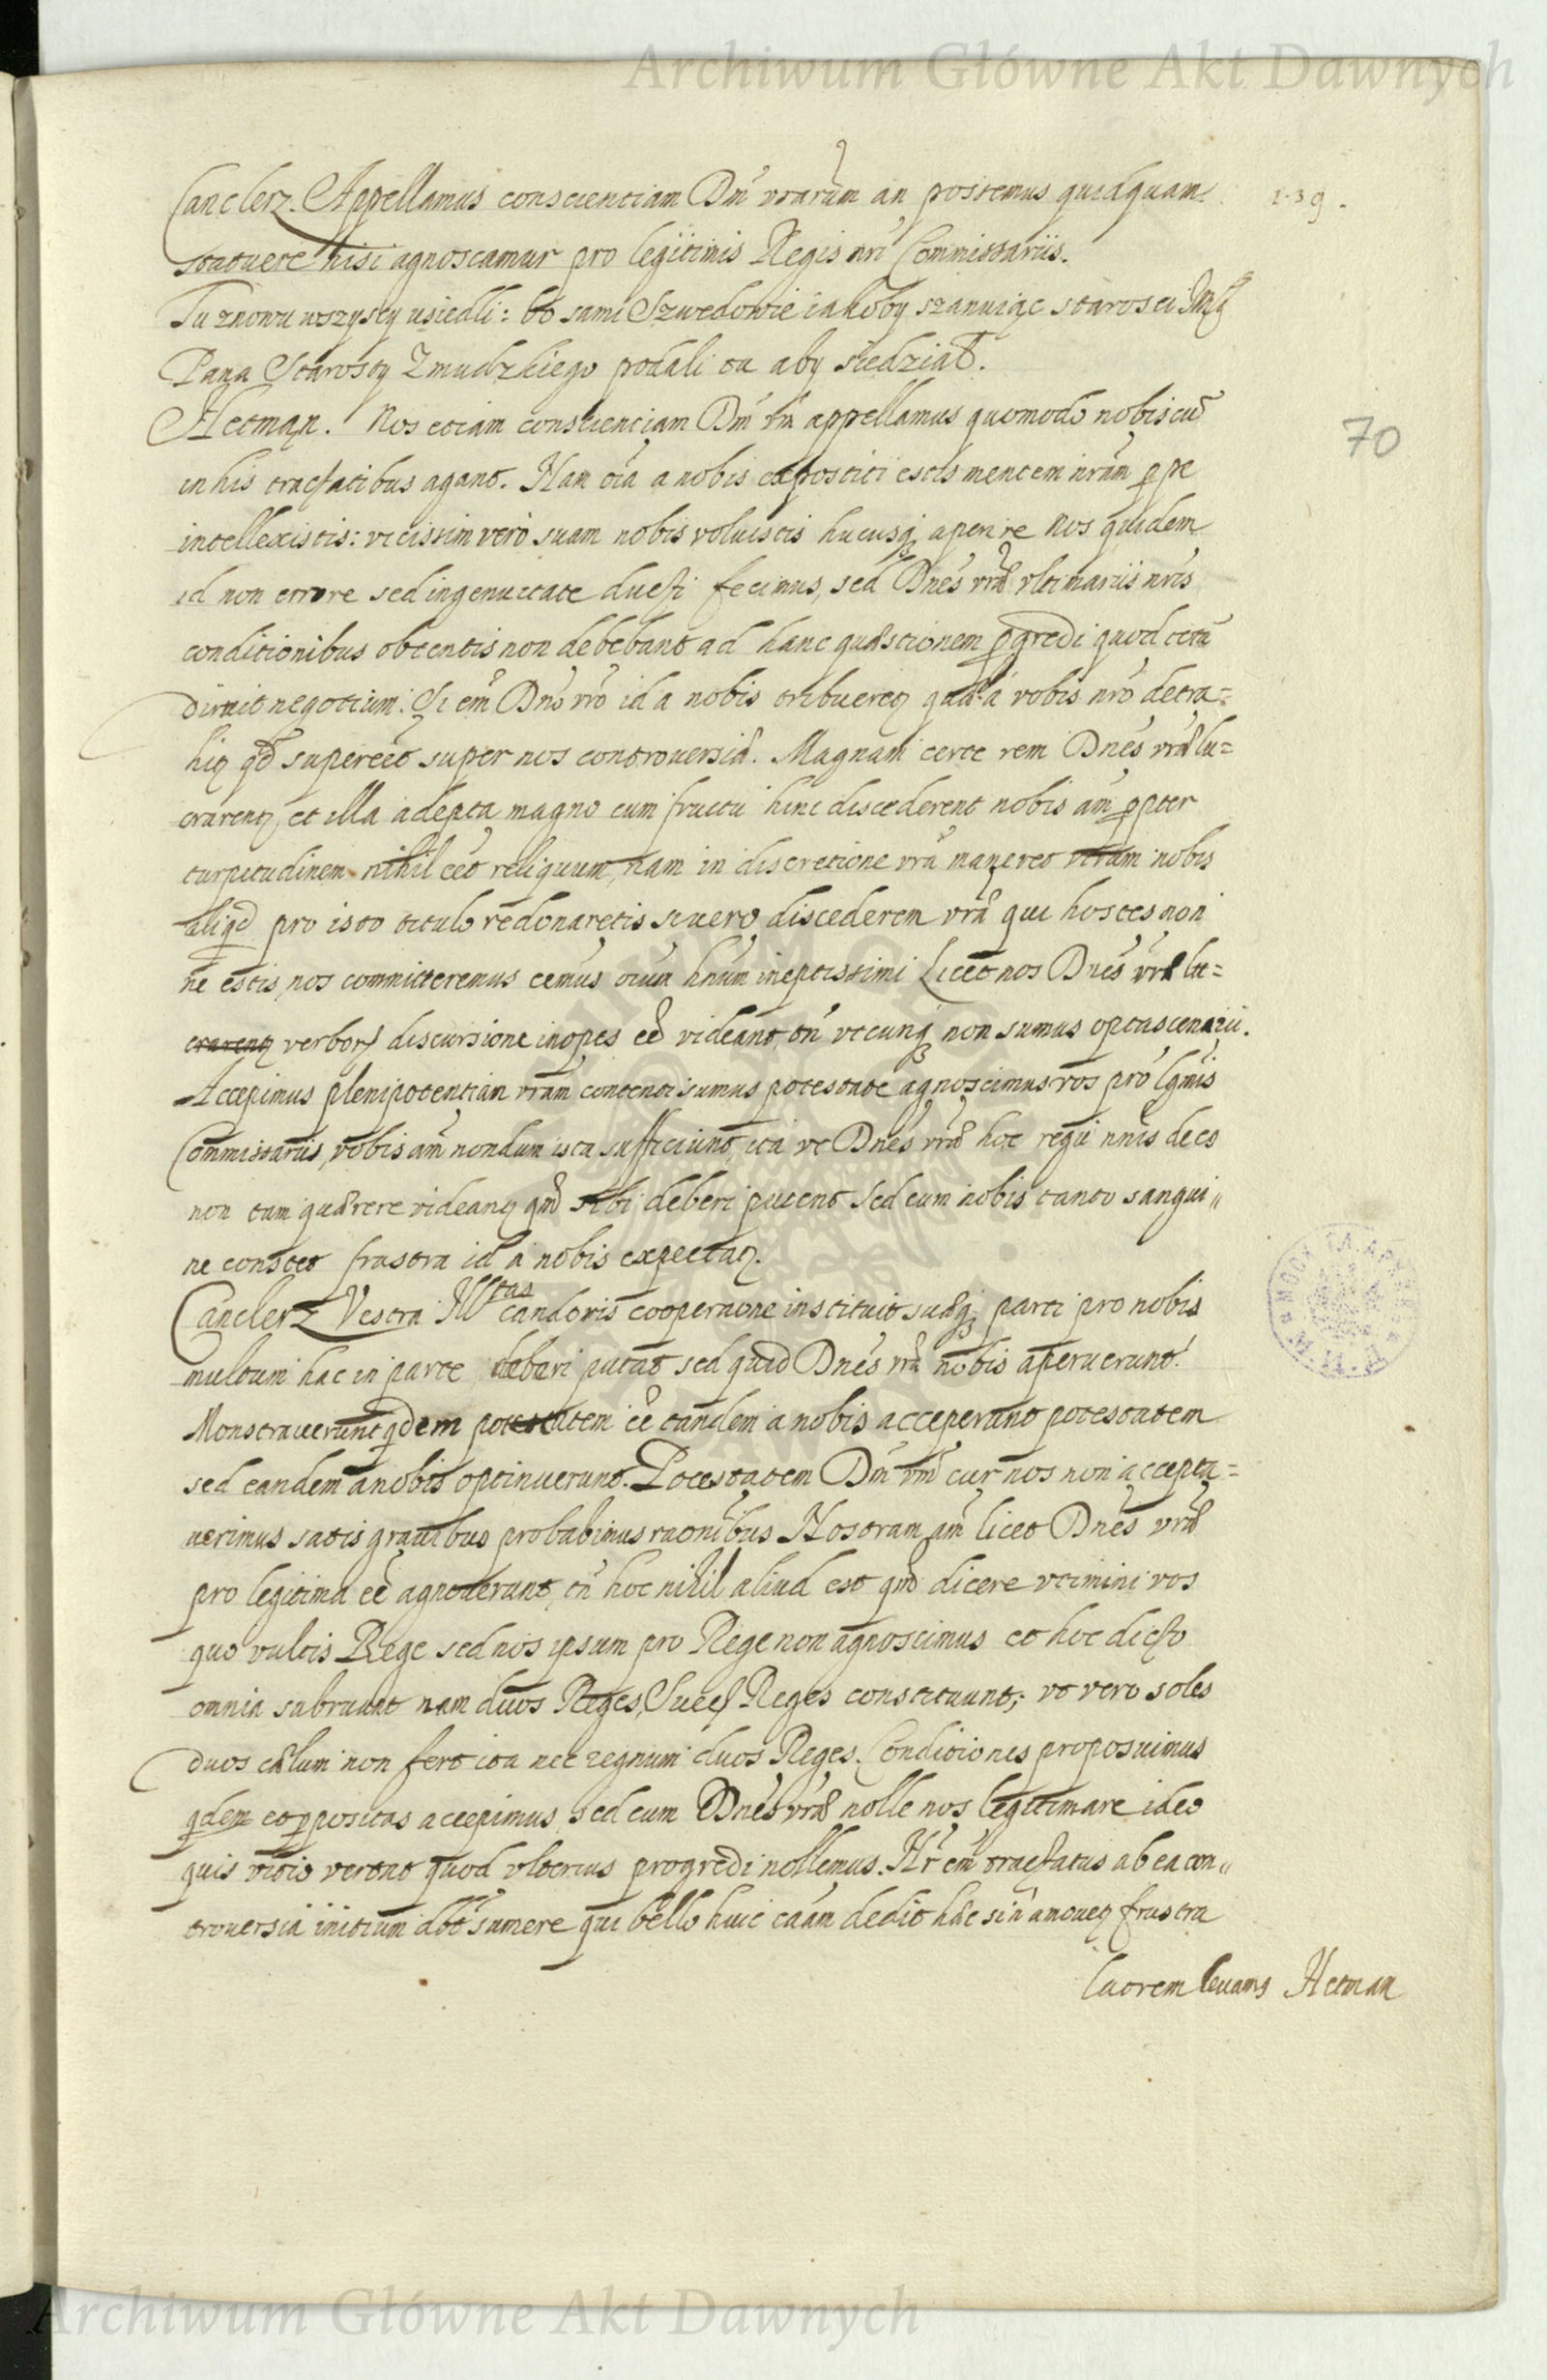 Archiwum Główne Akt Dawnych
Canclerz. Appellamus conscientiam Dm̃ vrarũm an possemus quidquam
139.
statuere nisi agnoscamur pro legitimis Regis nri Commissariis.
Tu znowu wszyscy usiedli: bo sami Szwedowie iakoby szanuiąc starosci
Pana Starosty Zmudzkiego podali tu aby siedział.
Hetman. Nos etiam conscienciam Dm̃ appellamus quomodo nobiscũ
70
in his tractatibus agant. Nam oĩa a nobis expostiti estis mentem nrãm
intellexistis: vicissim verò suam nobis voluistis hucusq̨ aperire Nos quidem
id non errore sed ingenuitate ducti fecimus, sed Dnes vrae vltimariis nris
conditionibus obtentis non debebant ad hanc quæstionem p̱gredi quod
dirimit negotium. Si em̃ Dno vro id a nobis tribueret a vobis nro detra=
hit qd superest super nos controversiæ. Magnam certe rem Dnes vræ lu=
crarent, et illa adepta magno cum fructu hinc discederent nobis am̃ p̱pter
turpitudinem nihil eet reliquum, nam in discretione vra maneret utrum nobis
aliqd pro isto titulo redonaretis si vero discederem vra qui hostes non
ne estis, nos committeremus ineptissimi Licet nos Dnes vræ
verbor discursione inopes eê videant, tn̄ vtcunq̨ non sumus
Accepimus plenipotentiam vram contenti sumus potestate agnoscimus vos pro
Commissariis, vobis am̃ nondum ista sufficiunt, ita vt Dnes vræ hoc regii
non tam quærere videant qd sibi deberi putent sed cum nobis tanto sangui"
ne constet frustra id a nobis expectat.
Canclerz Vestra Ill^tas candoris instituit suæq̨ parti pro nobis
multum hac in parte deberi putat sed quid Dnes vræ nobis aperuerunt.
Monstraverunt qdem potestatem eê tandem a nobis acceperunt potestatem
sed eandem a nobis optinuerunt. Potestatem Dm̃ cur nos non accepta=
uerimus satis grauibus probabimus raonibus Nostram am̃ licet Dnes vræ
pro legitima eê agnouerunt, tn̄ hoc nihil aliud est qd dicere vtimini vos
quo vultis Rege sed nos ipsum pro Rege non agnoscimus et hoc dicto
omnia subruunt nam duos Reges Reges constituunt; vt vero soles
duos cælum non fert ita nec regnum duos Reges. Conditiones proposuimus
qdem et p̱positas accepimus, sed cum Dnes vræ nolle nos legitimare ideo
quis vitio vertat quod vlterius progredi nollemus. Hr̃ em̃ tractatus ab ea con"
trouersia initium dbt sumere qui bello huic cãam dedit hac amouet frustra
Hetman
Archiwum Główne Akt Dawnych